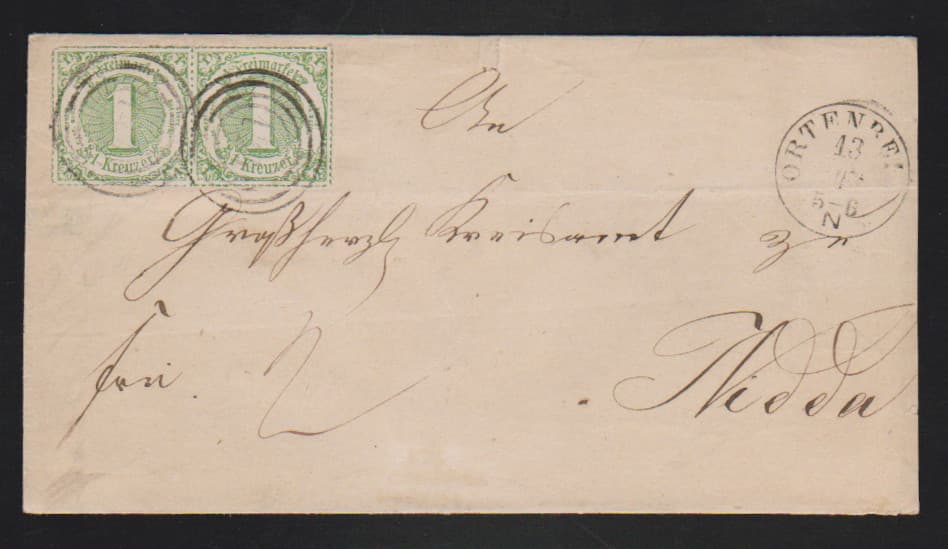 Freimarke Freimarke
1 1
1 Kreuzer 1 Kreuzer
An
ORTENBE
13
5-6
N
Großherzl Kreisamt zu
frei 2
Nidda